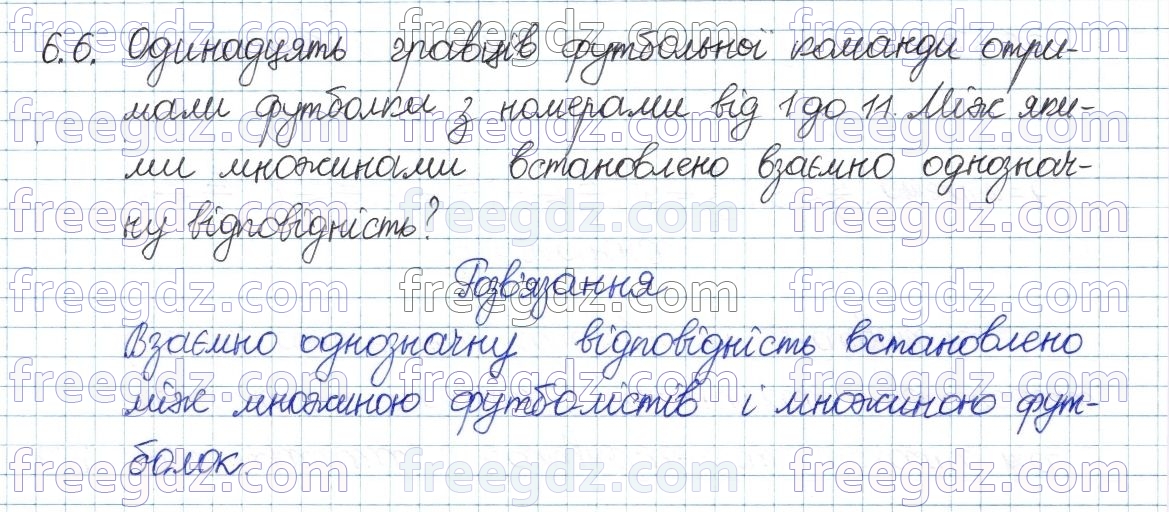 6.6. Одинадцять гравців футбольної команди отри-
мали футболки з номерами від 1 до 11. Між яки-
ми множинами встановлено взаємно однознач-
ну відповідність?
Розв'язання
Взаємно однозначну відповідність встановлено
між множиною футболістів і множиною фут-
болок.
freegdz.com